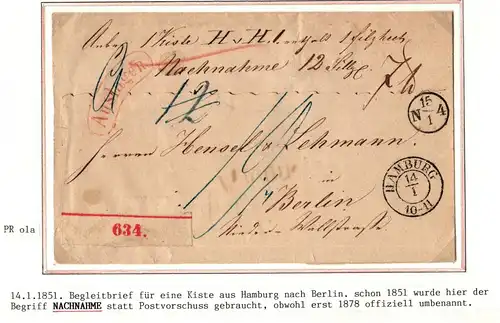 Anbei 1 Kiste H v H 1. enthält 1 Filzhut
Nachnahme 12 Sillg.
12
15
N 4
1
Herren Hensel & Lehmann.
in
Berlin
HAMBURG
14
1
10-11
634.
Nieder Wallstrasse.
PR ola
14.1.1851. Begleitbrief für eine Kiste aus Hamburg nach Berlin. schon 1851 wurde hier der
Begriff NACHNAHME statt Postvorschuss gebraucht, obwohl erst 1878 offiziell umbenannt.